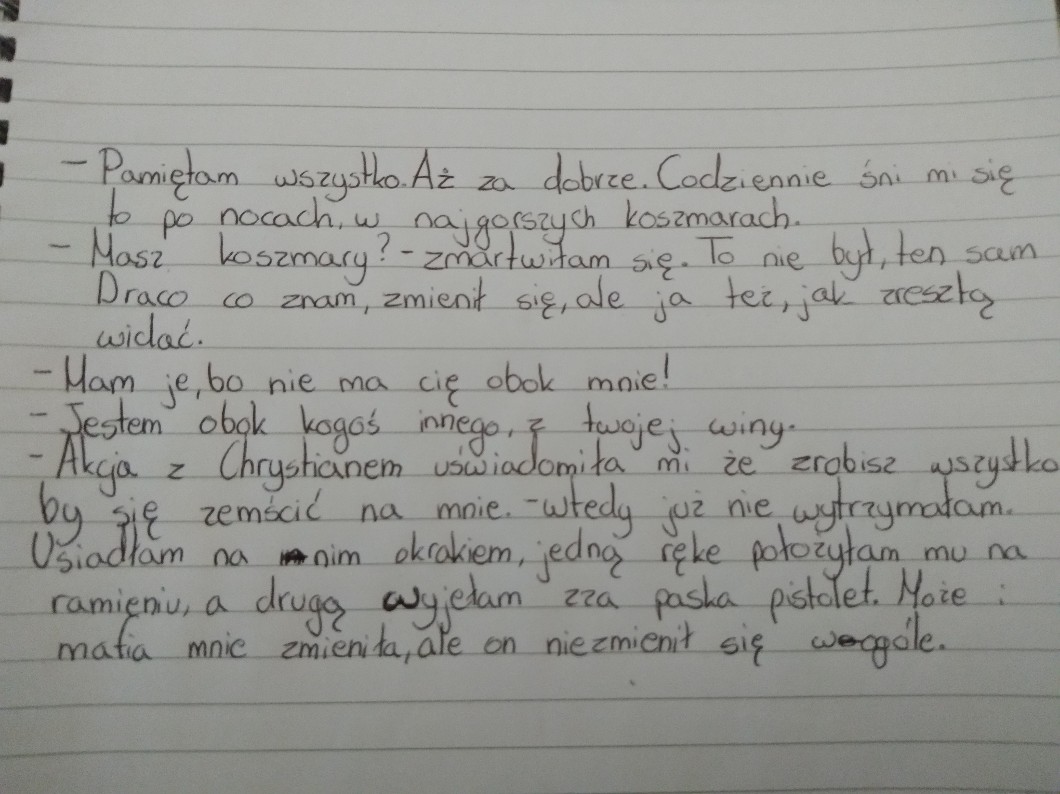 - Pamiętam wszystko. Aż za dobrze. Codziennie śni mi się
to po nocach, w najgorszych koszmarach.
- Masz koszmary? - zmartwiłam się. To nie był, ten sam
Draco co znam, zmienił się, ale ja też, jak zresztą
widać.
- Mam je, bo nie ma cię obok mnie!
- Jestem obok kogoś innego, z twojej winy.
- Akcja z Chrystianem uświadomiła mi że zrobisz wszystko
by się zemścić na mnie. - wtedy już nie wytrzymałam.
Usiadłam na nim okrakiem, jedną ręke położyłam mu na
ramieniu, a drugą wyjełam zza paska pistolet. Może i
mafia mnie zmieniła, ale on niezmienił się wogóle.